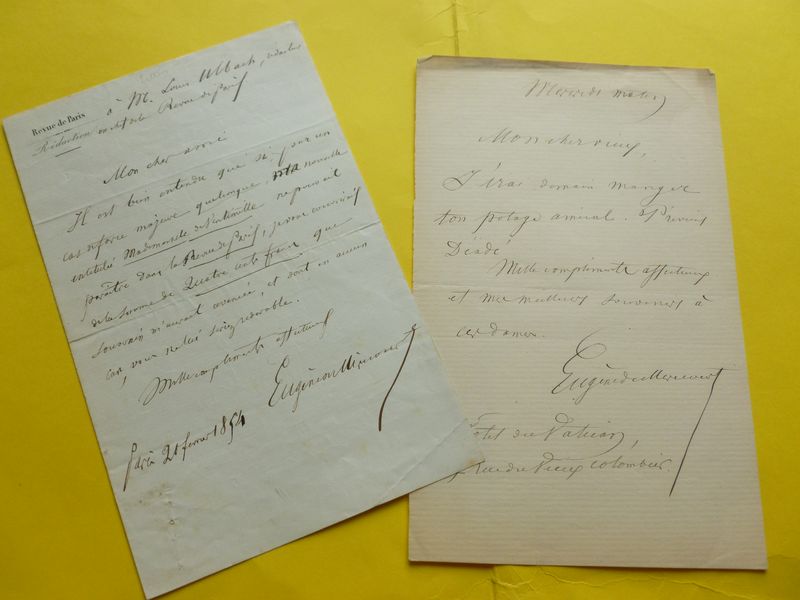 à M. Louis Ulbach, rédacteur
Revue de Paris
Rédaction en chef de la Revue de Paris
Mon cher ami
Il est bien entendu que si, par un
cas de force majeure quelconque, ma nouvelle
intitulée Mademoiselle de ne pouvait
paraître dans la Revue de Paris, je vous couvrirais
de la somme de Quatre cents francs que
m'aurait avancée, et dont en aucun
cas, vous ne redevable.
Mille compliments affectueux
Eugène de Mirecourt
Paris 21 février 1854
Mercredi matin,
Mon cher vieux,
J'irai demain manger
ton potage amical. Préviens
Mille compliments affectueux
et mes meilleurs souvenirs à
ces dames.
Eugène de Mirecourt
Hotel du Vatican,
Rue du Vieux Colombier.